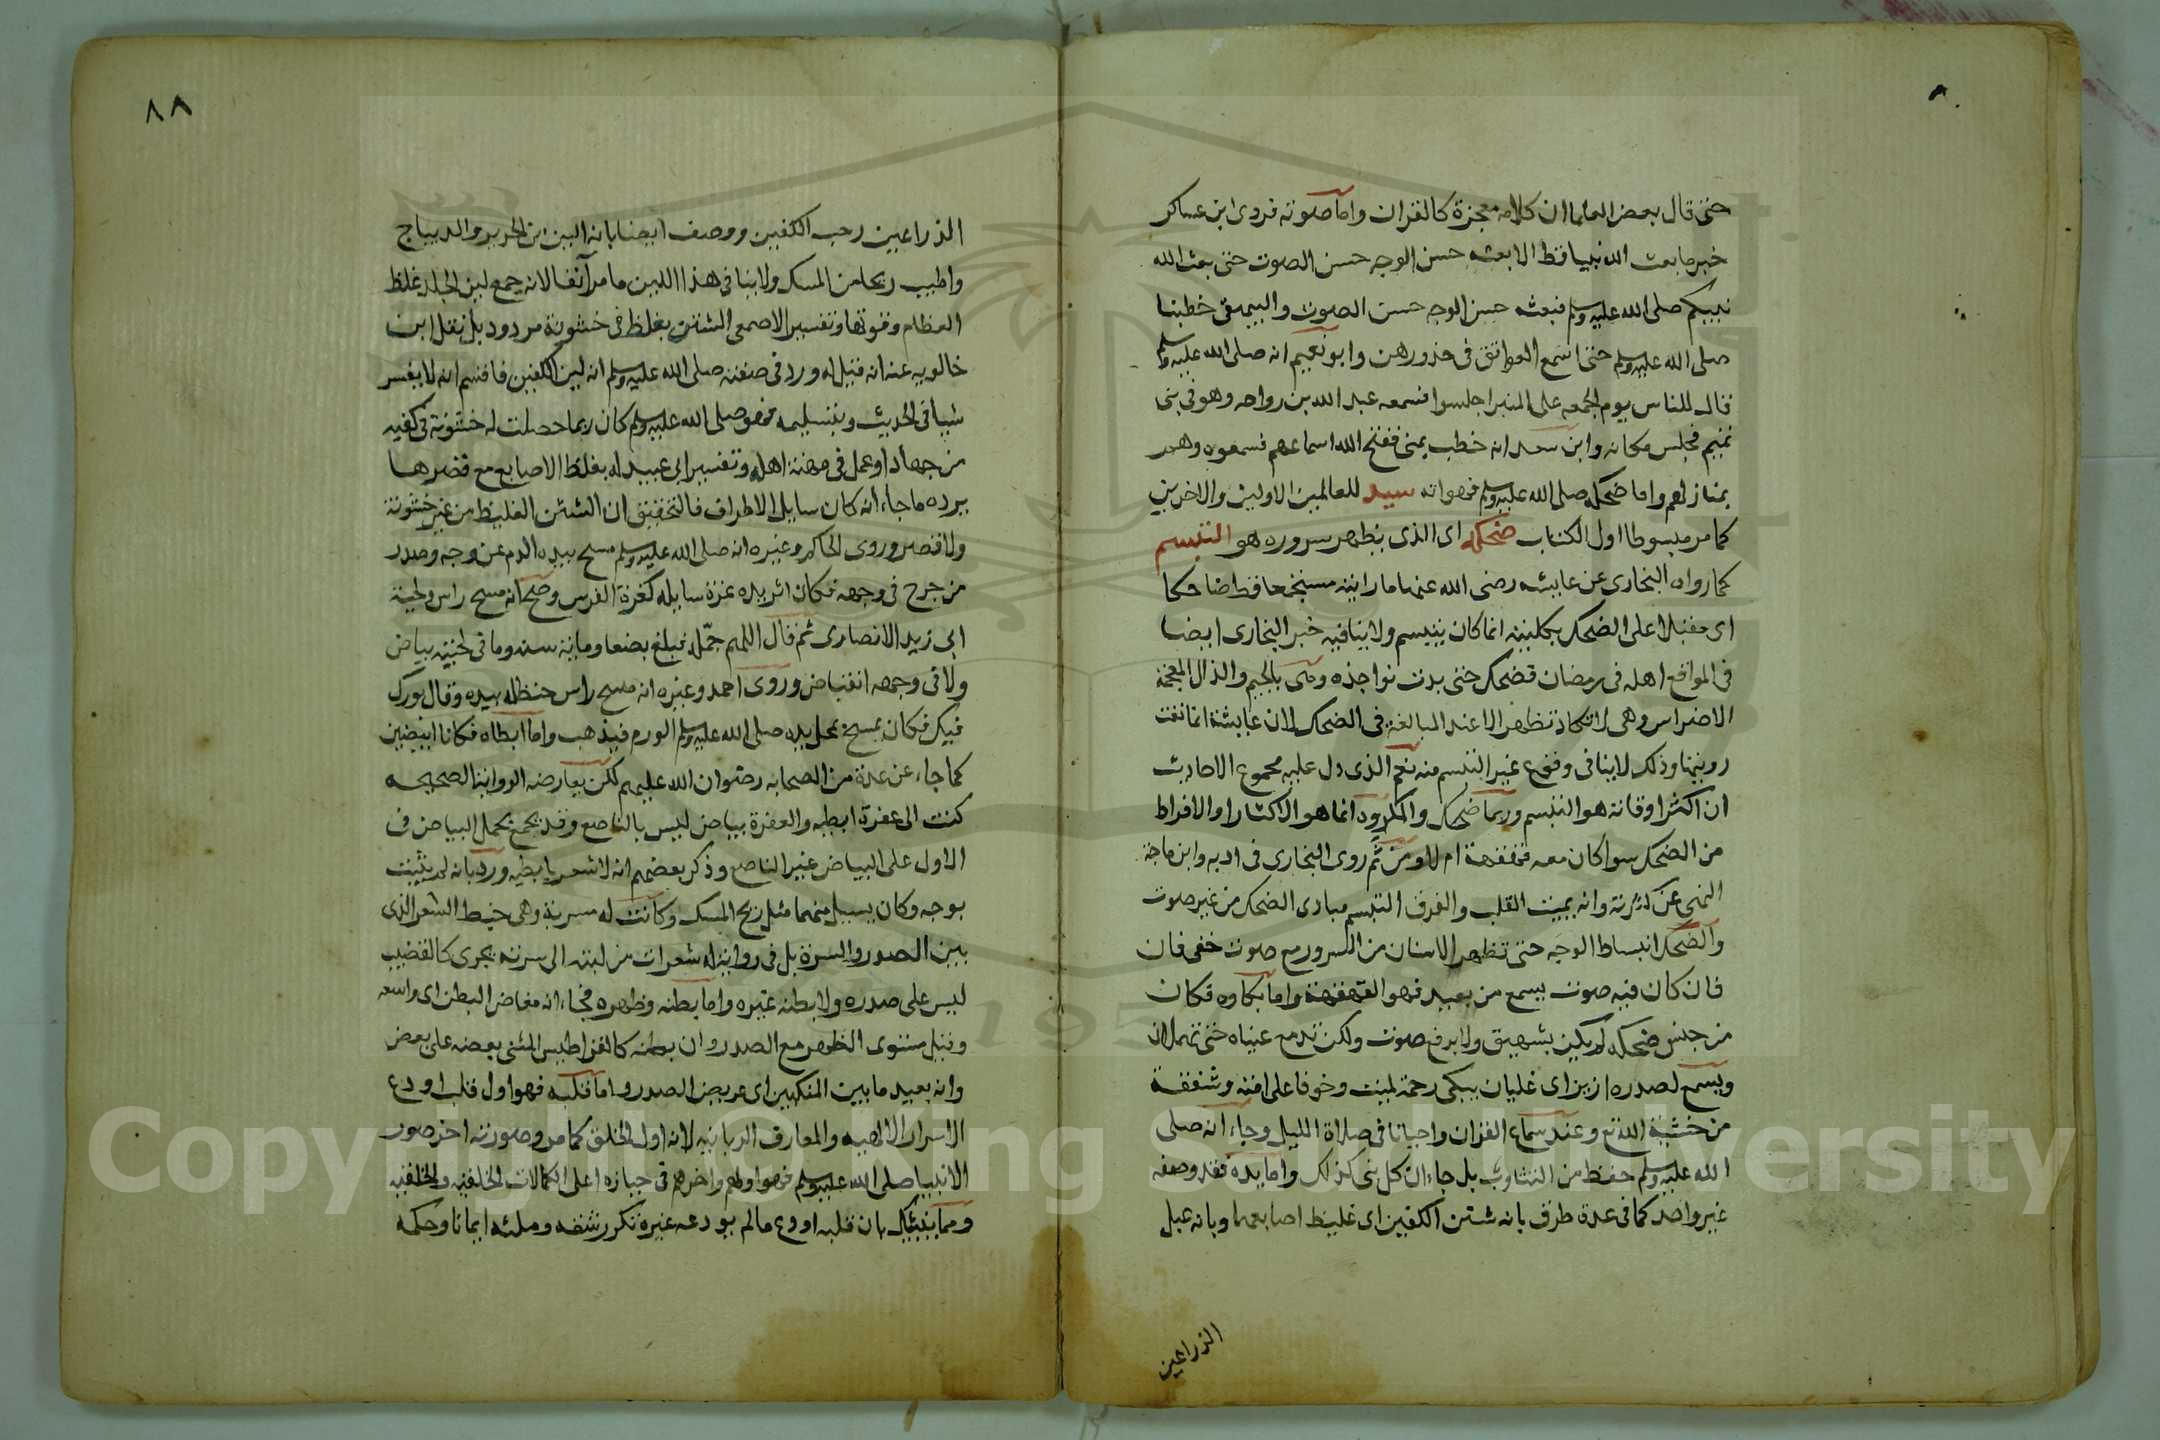 حتى قال بعض العلماان كلامه معجزة كالقران واما صوته فروى ابن عساكر
خبر ما بعث الله نبيا قط الا بعثه حسن الوجه حسن الصوت حتى بعث الله
نبيكم صلى الله عليه وسلم فبعثه حسن الوجه حسن الصوت والبيهقى خطبنا
صلى الله عليه وسلم حتى اسمع العواتق فى خدورهن وابو نعيم انه صلى الله عليه وسلم
قال للناس يوم الجمعه على المنبر اجلسوا فسمعه عبد الله بن رواحه وهو فى بنى
تميم فجلس مكانه وابن سعد انه خطب بمنى ففتح الله اسماعهم فسمعوه وهم
بمنازلهم واما ضحكه صلى الله عليه وسلم فهو انه سيد للعالمين الاولين والاخرين
كما مر مبسوطا اول الكتاب ضحكه اى الذى يظهر سروره هو التبسم
كما رواه البخارى عن عايشه رضى الله عنها ما رايته مستجمعا قط ضاحكا
اى مقبلا على الضحك بكليته انما كان يتبسم ولا ينافيه خبر البخارى ايضا
فى المواقع اهله فى رمضان فضحك حتى بدت نواجذه وهى بالجيم والذال المعجمة
الاضراس وهى لا تكاد تظهر الا عند المبالغة فى الضحك لان عايشة انما نفت
رويتها وذلك لا ينافى وقوع غير التبسم منه نعم الذى دل عليه مجموع الاحاديث
ان اكثر اوقاته هو التبسم وربما ضحك والمكروه انما هو الاكثار او الافراط
من الضحك سوا كان معه قهقهة ام لا ومن ثم روى البخارى فى ادبه وابن ماجة
النهى عن كثرته وانه يميت القلب والفرق التبسم مبادى الضحك من غير صوت
والضحك انبساط الوجه حتى تظهر الاسنان من السرور مع صوت خفى فان
فان كان فيه صوت يسمع من بعيد فهو القهقهة واما بكاوه فكان
من جنس ضحكه لم يكن بشهيق ولا برفع صوت ولكن تدمع عيناه حتى تهملان
ويسمع لصدره ازيز اى غليان يبكى رحمة لميت وخوفا على امته وشفقة
من خشية الله تع وعند سماع القران واحيانا فى صلاة الليل وجاء انه صلى
الله عليه وسلم حفظ من التثاوب بل جاء ان كل نبى كذلك واما يده فقد وصفه
غير واحد كما فى عدة طرق بانه شثن الكفين اى غليظ اصابعهما وبانه عبل
الذراعين
٨٨
الذراعين رحب الكفين ووصف ايضا بانه الين من الحرير والديباج
واطيب ريحا من المسك ولا ينافى هذا اللين ما مر آنفا لانه جمع لين الجلد غلظ
العظام وقوتها وتفسير الاصمعى الشثن بغلظ فى خشونة مردود بل نقل ابن
خالويه عنه انه قيل له ورد فى صفته صلى الله عليه وسلم انه لين الكفين فاقسم انه لا يفسر
شيا فى الحديث وبتسليمه فهو صلى الله عليه وسلم كان ربما حصلت له خشونة فى كفيه
من جهاد او عمل فى مهنة اهله وتفسير ابى عبيد له بغلظ الاصابع مع قصرها
يرده ما جاء انه كان سايل الاطراف فالتحقيق ان الشثن الغليظ من غير خشونة
ولا قصر وروى الحاكم وغيره انه صلى الله عليه وسلم مسح بيده الدم عن وجه وصدر
من جرح فى وجهه فكان اثر يده غرة سايله كغرة الفرس وصح انه مسح راس ولحية
ابى زيد الانصارى ثم قال اللهم جمّله فبلغ بضعا وماية سنه وما فى لحيته بياض
ولا فى وجهه انقباض وروى احمد وغيره انه مسح راس حنظله بيده وقال بورك
فيك فكان يمسح بمحل يده صلى الله عليه وسلم الورم فيذهب واما ابطاه فكانا ابيضين
كما جاء عن عدة من الصحابه رضوان الله عليهم لكن يعارضه الرواية الصحيحه
كنت الى عفرة ابطيه والعفرة بياض ليس بالناصع وقد يجمع بحمل البياض فى
الاول على البياض غير الناصع وذكر بعضهم انه لا شعر بابطيه ورد بانه لم يثبت
بوجه وكان يسيل منهما مثل ريح المسك وكانت له مسربة وهى خيط الشعر الذى
بين الصدر والسرة بل فى رواية له شعرات من لبته الى سرته يجرى كالقضيب
ليس على صدره ولا بطنه غيره واما بطنه وظهره فجاء انه مفاض البطن اى واسعه
وقيل مستوى الظهر مع الصدر وان بطنه كالقراطيس المثنى بعضه على بعض
وانه بعيد ما بين المنكبين اى عريض الصدر واما قلبه فهو اول قلب اودع
الاسرار الالهيه والمعارف الربانيه لانه اول الخلق كما مر وصورته اخر صور
الانبيا صلى الله عليه وسلم فهو اولهم واخرهم فى حيازه اعلى الكمالات الخلقيه والخلقيه
ومما ينبئك بان قلبه اودع مالم يودعه غيره تكرر شقه وملئه ايمانا وحكمه
Copyright © King Saud University